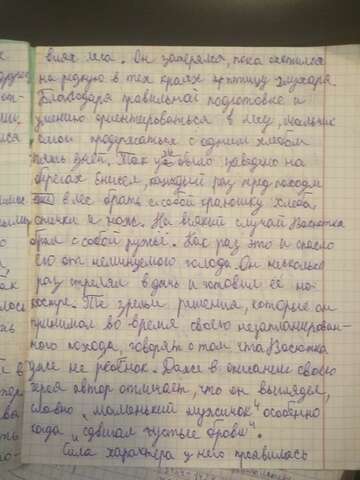 виях леса. Он затерялся, пока охотился
на редкую в тех краях птицу глухаря.
Благодаря правильной подготовке и
умению ориентироваться в лесу, мальчик
смог продержаться с одним хлебом
пять дней. Так уж было заведено на
берегах Енисея, каждый раз пред походом
в лес брать с собой краюшку хлеба,
спички и нож. На всякий случай Васютка
брал с собой ружье. Как раз это и спасло
его от неминуемого голода. Он несколько
раз стрелял в дичь и готовил её на
костре. Те зрелы решения, которые он
принимал во время своего незапланирован-
ного похода, говорят о том что Васютка
уже не ребёнок. Даже в описании своего
героя автор отмечает, что он выглядел,
словно "маленький мужичок" особенно
когда "сдвигал густые брови".
Сила характера у него проявилась